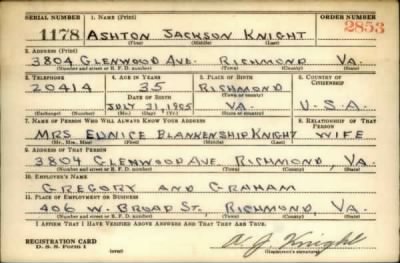 SERIAL NUMBER 1. NAME (Print) ORDER NUMBER
1178 ASHTON JACKSON KNIGHT 2853
(First) (Middle) (Last)
2. ADDRESS (Print)
3804 GLENWOOD AVE. RICHMOND VA.
(Number and street or R. F. D. number) (Town) (County) (State)
3. TELEPHONE 4. AGE IN YEARS 5. PLACE OF BIRTH 6. COUNTRY OF CITIZENSHIP
20414 35 RICHMOND
DATE OF BIRTH (Town or county)
JULY 31, 1905 VA. U.S.A.
(Exchange) (Number) (Mo.) (Day) (Yr.) (State or country)
7. NAME OF PERSON WHO WILL ALWAYS KNOW YOUR ADDRESS 8. RELATIONSHIP OF THAT PERSON
MRS EUNICE BLANKENSHIP KNIGHT WIFE
(Mr., Mrs., Miss) (First) (Middle) (Last)
9. ADDRESS OF THAT PERSON
3804 GLENWOOD AVE, RICHMOND, VA.
(Number and street or R. F. D. number) (Town) (County) (State)
10. EMPLOYER'S NAME
GREGORY AND GRAHAM
11. PLACE OF EMPLOYMENT OR BUSINESS
406 W. BROAD ST., RICHMOND, VA.
(Number and street or R. F. D. number) (Town) (County) (State)
I AFFIRM THAT I HAVE VERIFIED ABOVE ANSWERS AND THAT THEY ARE TRUE.
REGISTRATION CARD
D. S. S. Form 1 (over) A. J. Knight
(Registrant's signature)